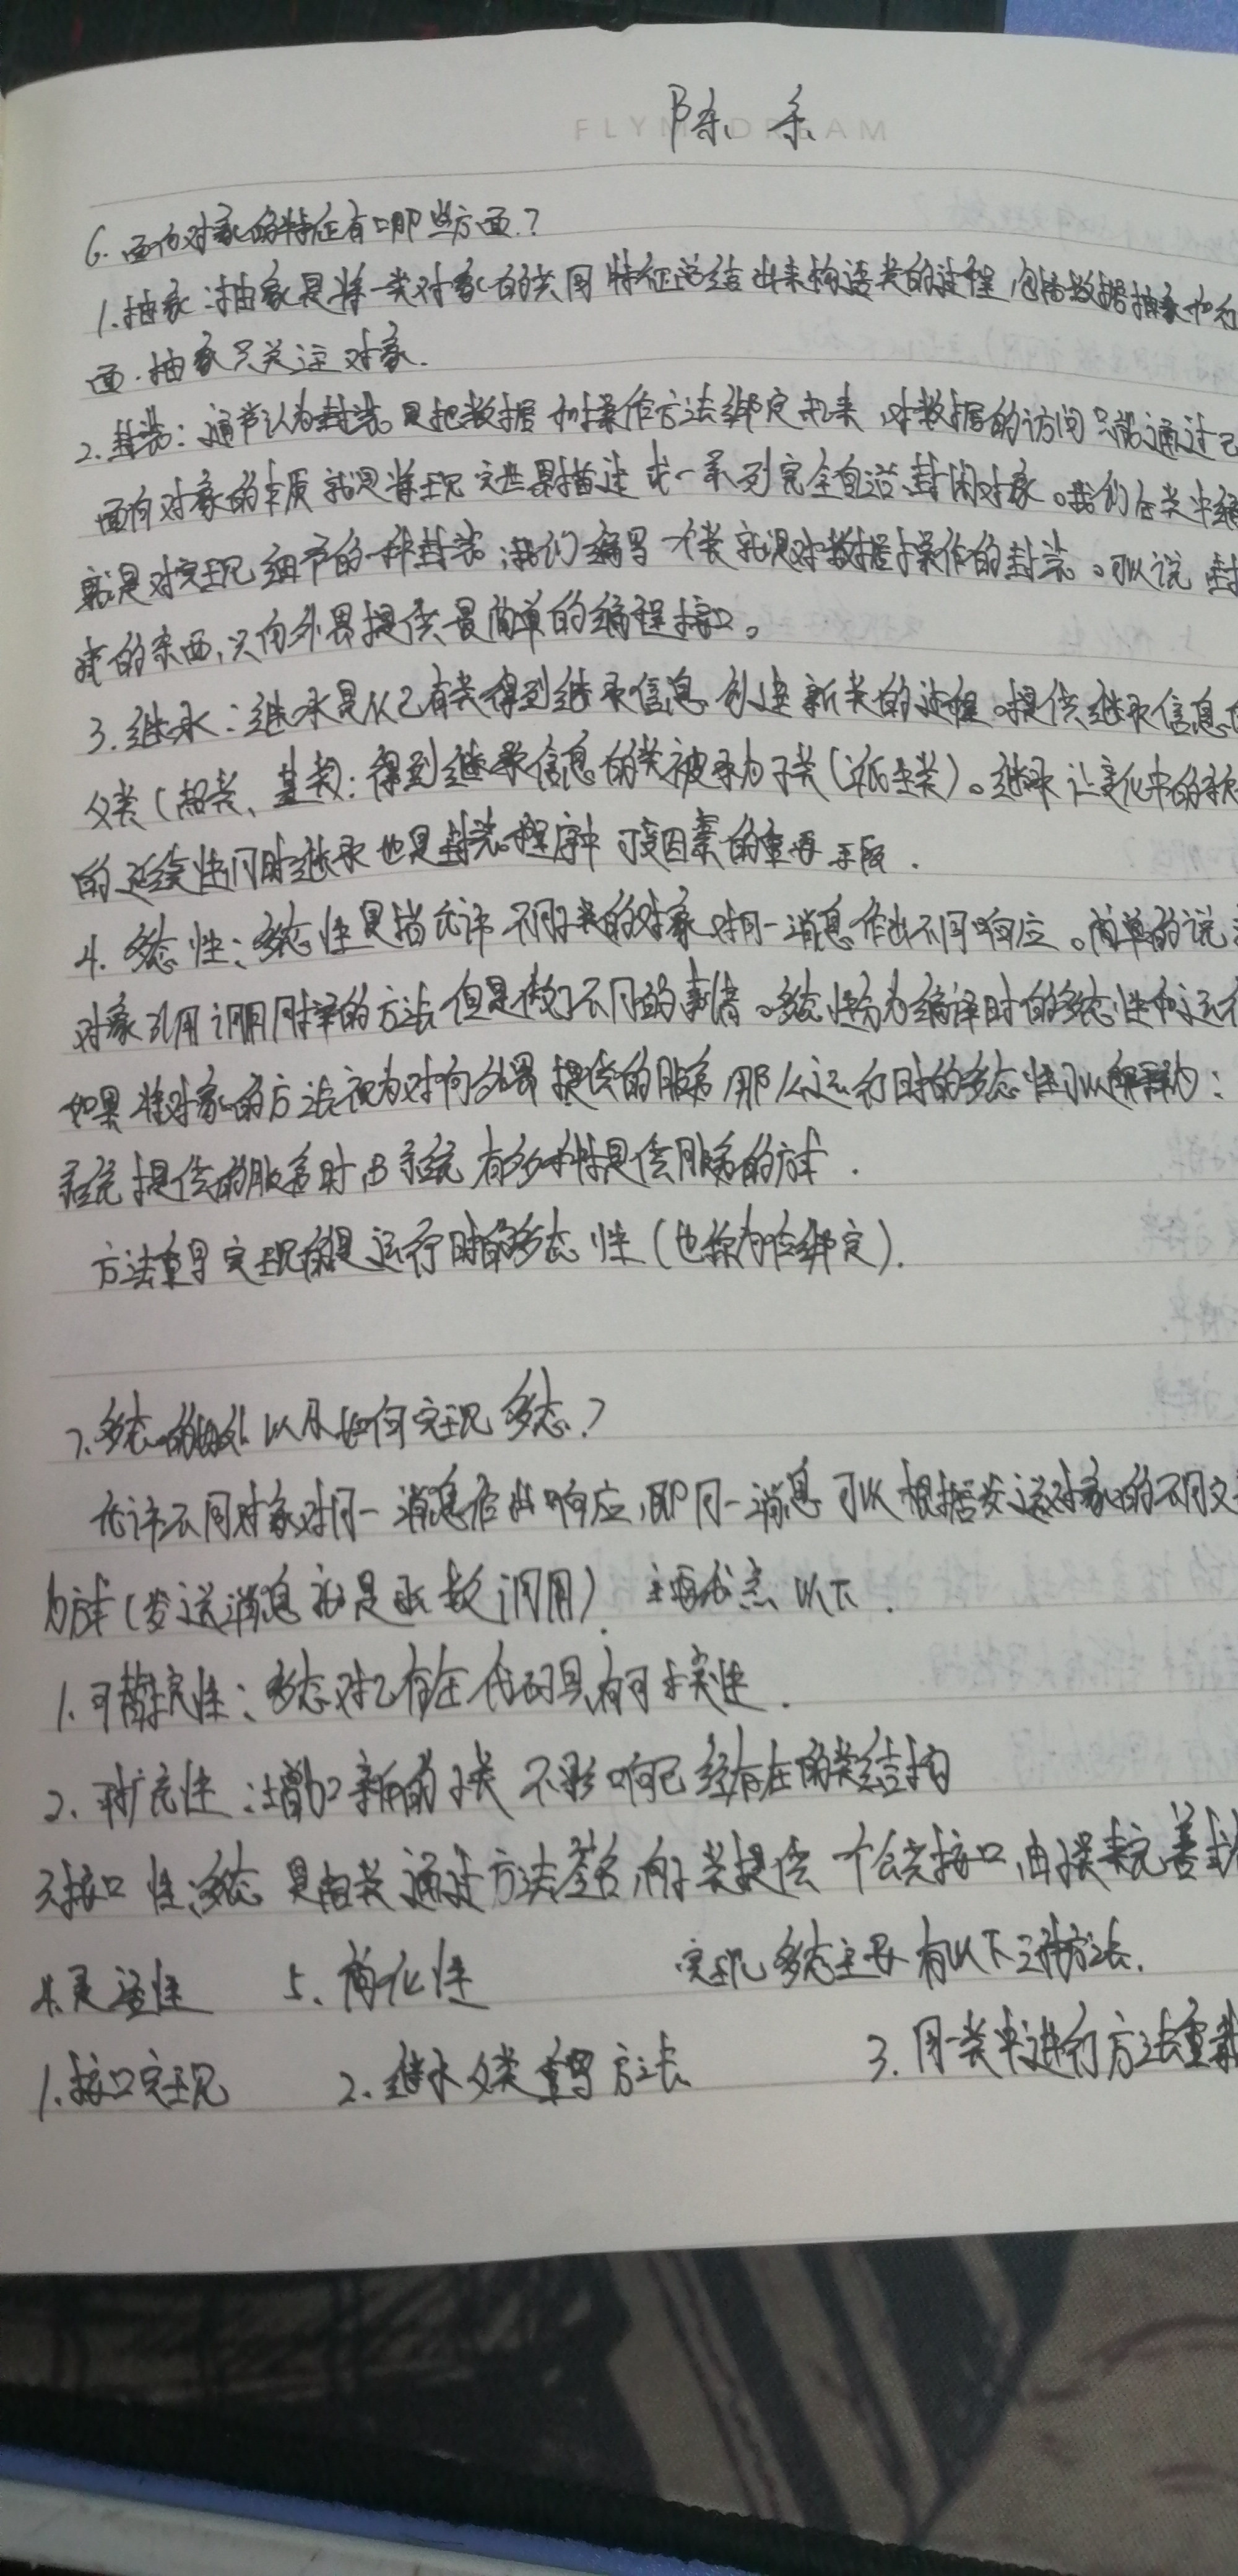 FLYM DREAM
陈 余
6. 面向对象的特征有哪些方面?
1.抽象:抽象是将一类对象的共同特征总结出来构造类的过程,包括数据抽象和行
面.抽象只关注对象.
2.封装:通常认为封装是把数据和操作方法绑定起来,对数据的访问只能通过已
面向对象的本质就是将现实世界描述成一系列完全自治、封闭对象。我们在类中编
就是对实现细节的一种封装;我们编写一个类就是对数据操作的封装。可以说,封
的东西,只向外界提供最简单的编程接口。
3.继承:继承是从已有类得到继承信息创建新类的过程。提供继承信息
父类(超类、基类);得到继承信息的类被承为子类(派生类)。继承让变化中的软
的延续性同时继承也是封装程序中可变因素的重要手段.
4.多态性:多态性是指允许不同子类的对象对同一消息作出不同响应。简单的说
对象引用调用同样的方法但是做了不同的事情。多态性分为编译时的多态性和运行
如果将对象的方法视为对向外界提供的服务,那么运行时的多态性可以解释为:
系统提供的服务时,B系统有多种提供服务的方式.
方法重写实现的是运行时的多态性(也称为后绑定).
7.多态的好处以及如何实现多态?
允许不同对象对同一消息作出响应,即同一消息可以根据发送对象的不同
为方式(发送消息就是函数调用).主要优点以下.
1.可替换性:多态对已存在代码具有可替换性.
2.可扩充性:增加新的子类不影响已经存在的类结构
3.接口性:多态是由类通过方法签名,向子类提供一个公共接口,由子类来完善
4.灵活性 5.简化性 实现多态主要有以下三种方法.
1.接口实现 2.继承父类重写方法 3.同一类中进行方法重载